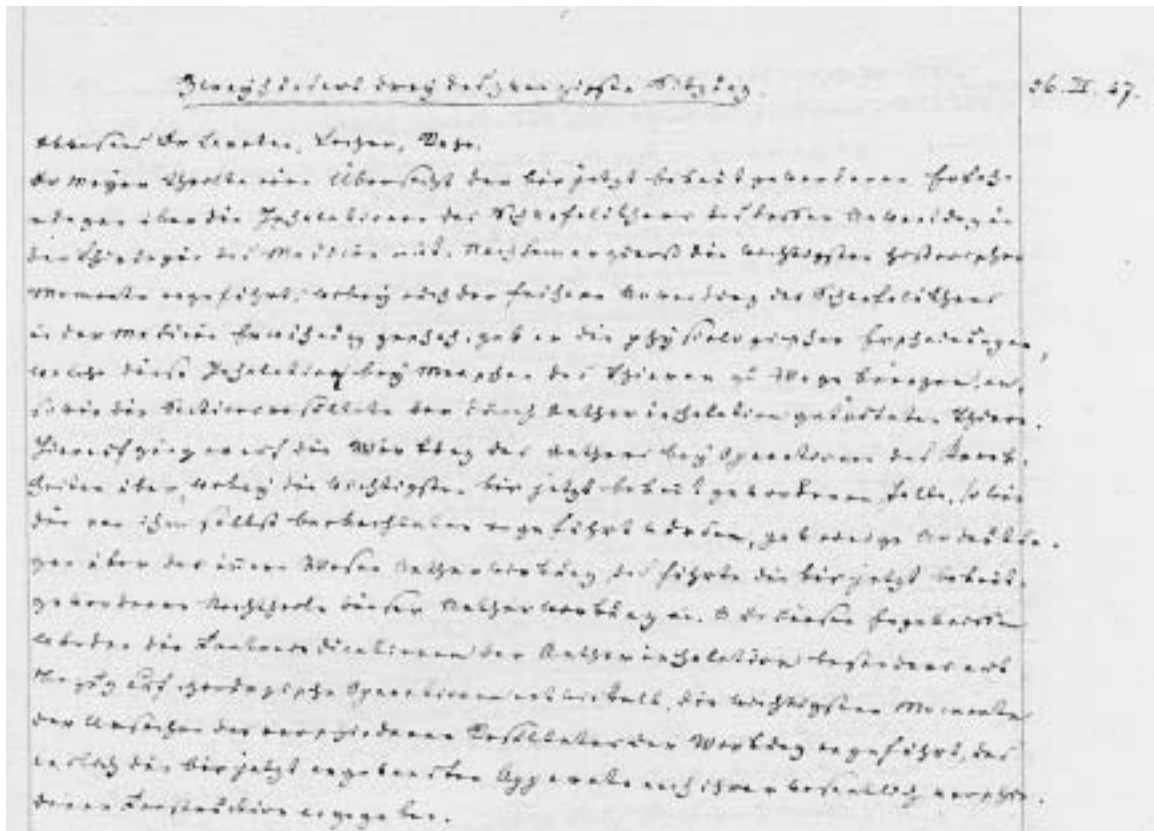 Zweyhundert drey und zwanzigste Sitzung. 26. IV. 47.
Abwesend Dr
Dr Meyer theilte eine Übersicht der bis jetzt bekannt gewordenen Erfah-
rungen über die Inhalationen des Schwefeläthers und dessen Anwendung in
der Chirurgie und Medicin mit. Nachdem er zuerst die wichtigsten historischen
Momente angeführt, wobey auch der frühern Anwendung des Schwefeläthers
in der Medicin Erwähnung geschah, gab er die physiologischen Erscheinungen,
welche diese Inhalation bey Menschen und Thieren zu Wege bringen, an,
sowie die Sectionsresultate der durch Aetherinhalation getödteten Thiere.
Hierauf ging er auf die Wirkung des Aethers bey Operationen und Krank-
heiten über, wobey die wichtigsten bis jetzt bekannt gewordenen Fälle, sowie
die von ihm selbst beobachteten angeführt wurden, gab einige Andeutun-
gen über das innere Wesen der Aetherwirkung und führte die bis jetzt bekannt
gewordenen Nachtheile dieser Aetherwirkung an. Aus diesen Ergebnissen
wurden die Contraindicationen der Aetherinhalation besonders mit
Bezug auf chirurgische Operationen entwickelt, die wichtigsten Momente
der Ursachen der verschiedenen Resultate der Wirkung angeführt, und
endlich die bis jetzt angewandten Apparate nach ihrer wesentlich verschie-
denen Construction angegeben.